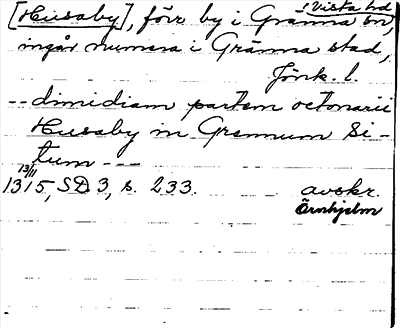 [Husaby], förr by i Gränna sn, i Vista hd
ingår numera i Gränna stad,
Jönk. l.
-- dimidiam partem octonarii
Husaby in Grennum Si-
tum ---
13/11
1315, SD 3, s. 233. avskr.
Örnhjelm